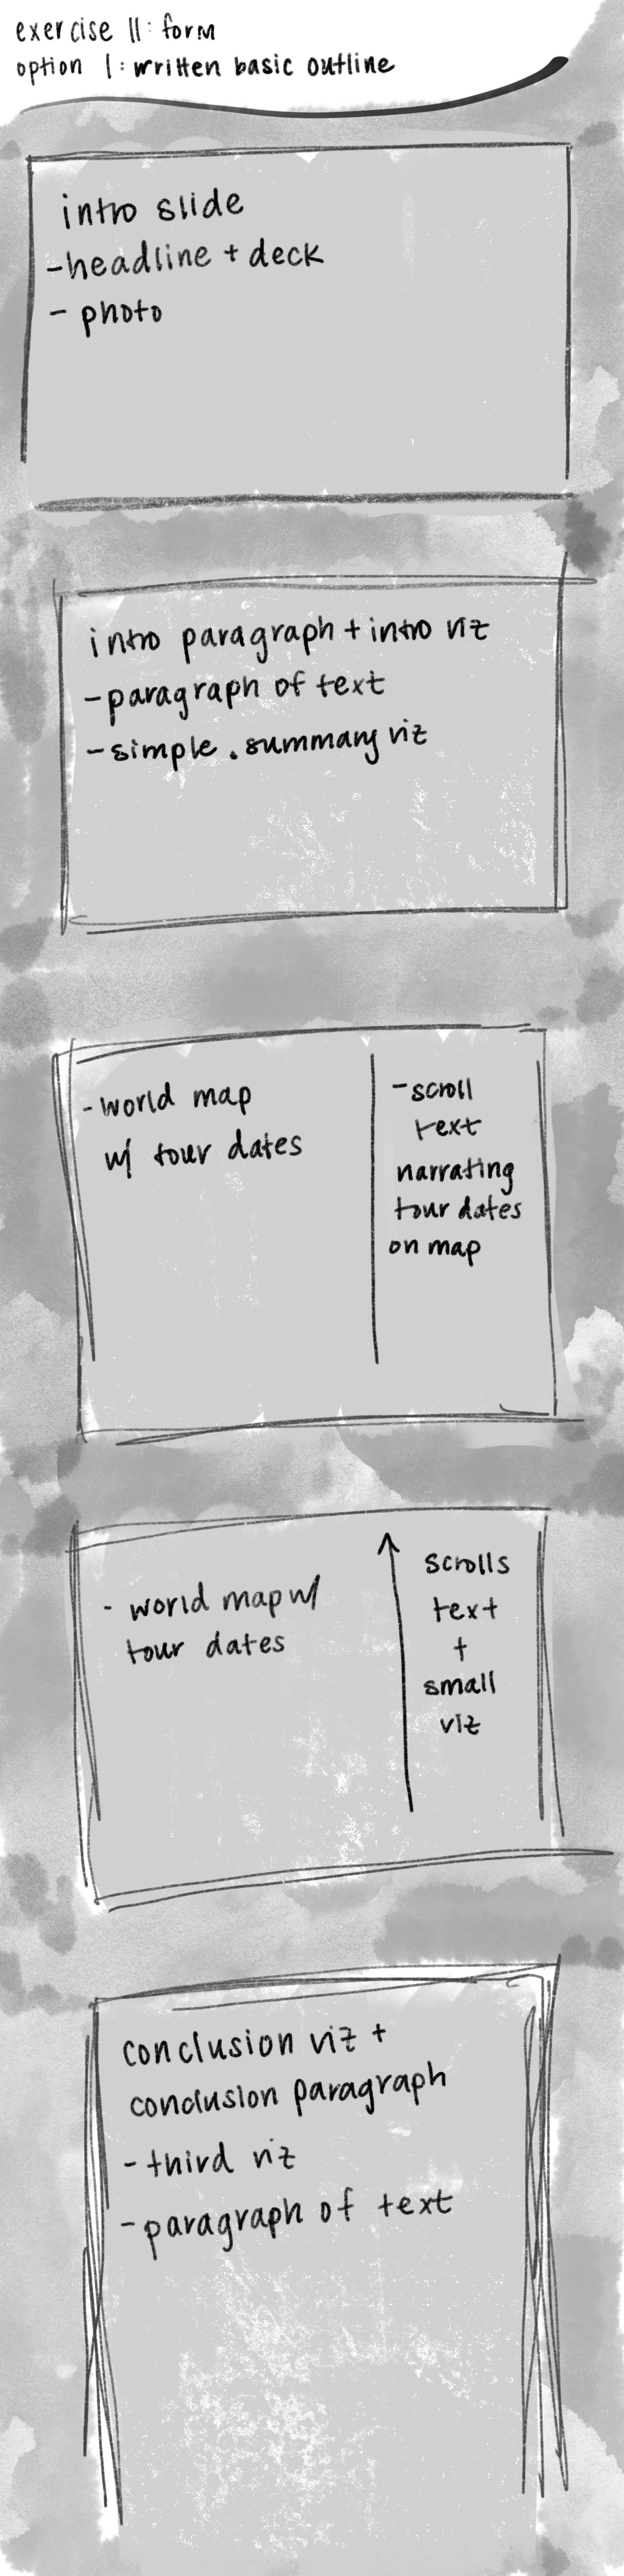 exercise 11: form
option 1: written basic outline
intro slide
- headline + deck
- photo
intro paragraph + intro viz
- paragraph of text
- simple . summary viz
- world map
w/ tour dates
- scroll
text
narrating
tour dates
on map
- world map w/
tour dates
scrolls
text
+
small
viz
conclusion viz +
conclusion paragraph
- third viz
- paragraph of text